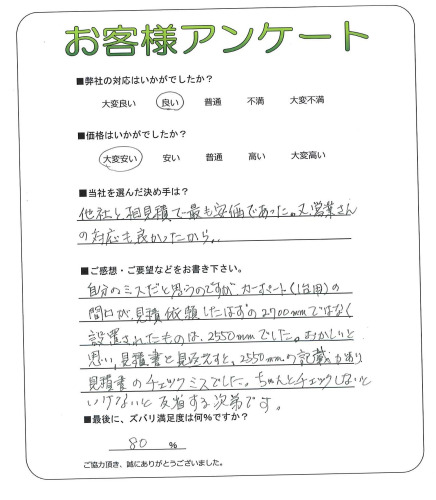 お客様アンケート
■弊社の対応はいかがでしたか？
大変良い 良い 普通 不満 大変不満
■価格はいかがでしたか？
大変安い 安い 普通 高い 大変高い
■当社を選んだ決め手は？
他社と相見積で最も安価であった。又営業さん
の対応も良かったから、、
■ご感想・ご要望などをお書き下さい。
自分のミスだと思うのですが、カーポート(1台用)の
間口が、見積依頼したはずの2700mmではなく
設置されたものは、2550mmでした。おかしいと
思い、見積書を見返すと、2550mmの記載があり
見積書のチェックミスでした。ちゃんとチェックしないと
いけないと反省する次第です。
■最後に、ズバリ満足度は何％ですか？
80 ％
ご協力頂き、誠にありがとうございました。